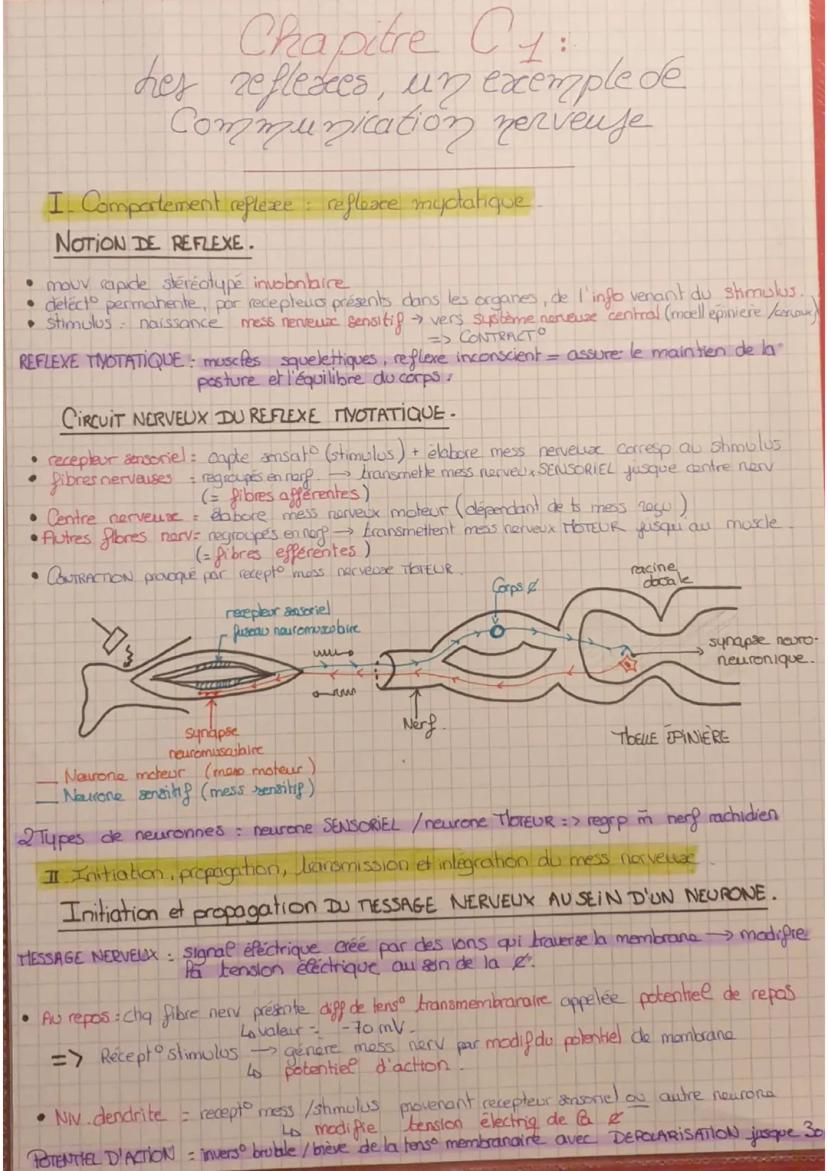 Chapitre C1 :
Les reflexes, un exemple de
Communication nerveuse
I. Comportement reflexe : reflexe myotatique
NOTION DE REFLEXE.
• mouv rapide stéréotypé involontaire
• détect° permanente, par recepteurs présents dans les organes, de l'info venant du stimulus.
• stimulus = naissance mess nerveux sensitif → vers système nerveux central (moell épinière /cerveau)
=> CONTRACT°
REFLEXE MYOTATIQUE : muscles squelettiques, reflexe inconscient = assurer le maintien de la
posture et l'équilibre du corps.
CIRCUIT NERVEUX DU REFLEXE MYOTATIQUE.
• recepteur sensoriel = capte sensat° (stimulus) + élabore mess nerveux corresp au stimulus
• fibres nerveuses = regroupés en nerf → transmette mess nerveux SENSORIEL jusque centre nerv
(= fibres afférentes)
• Centre nerveux = élabore mess nerveux moteur (dépendant de ts mess reçu)
• Autres fibres nerv = regroupés en nerf → transmettent mess nerveux MOTEUR jusqu'au muscle.
(= fibres efférentes)
• CONTRACTION provoqué par recept° mess nerveux MOTEUR.
racine
dorsale
Corps ¢
recepteur sensoriel
fuseau neuromusculaire
synapse neuro-
neuronique.
Nerf.
synapse
neuromusculaire
MOELLE ÉPINIÈRE
__ Neurone moteur (mess moteur)
__ Neurone sensitif (mess sensitif)
2 Types de neuronnes : neurone SENSORIEL / neurone MOTEUR => regrp m̄ nerf rachidien
II Initiation, propagation, transmission et intégration du mess nerveux
Initiation et propagation DU MESSAGE NERVEUX AU SEIN D'UN NEURONE.
MESSAGE NERVEUX : signal éléctrique créé par des ions qui traverse la membrane → modifie
la tension éléctrique au sein de la ¢.
• Au repos : chq fibre nerv présente diff de tens° transmembranaire appelée potentiel de repos
↳ valeur = -70 mV.
=> Récept° stimulus → génère mess nerv par modif du potentiel de membrane
↳ potentiel d'action.
• Niv. dendrite = recept° mess /stimulus provenant recepteur sensoriel ou autre neurone
↳ modifie tension électriq de la ¢
POTENTIEL D'ACTION = invers° brutale / brève de la tens° membranaire avec DEPOLARISATION jusque 30